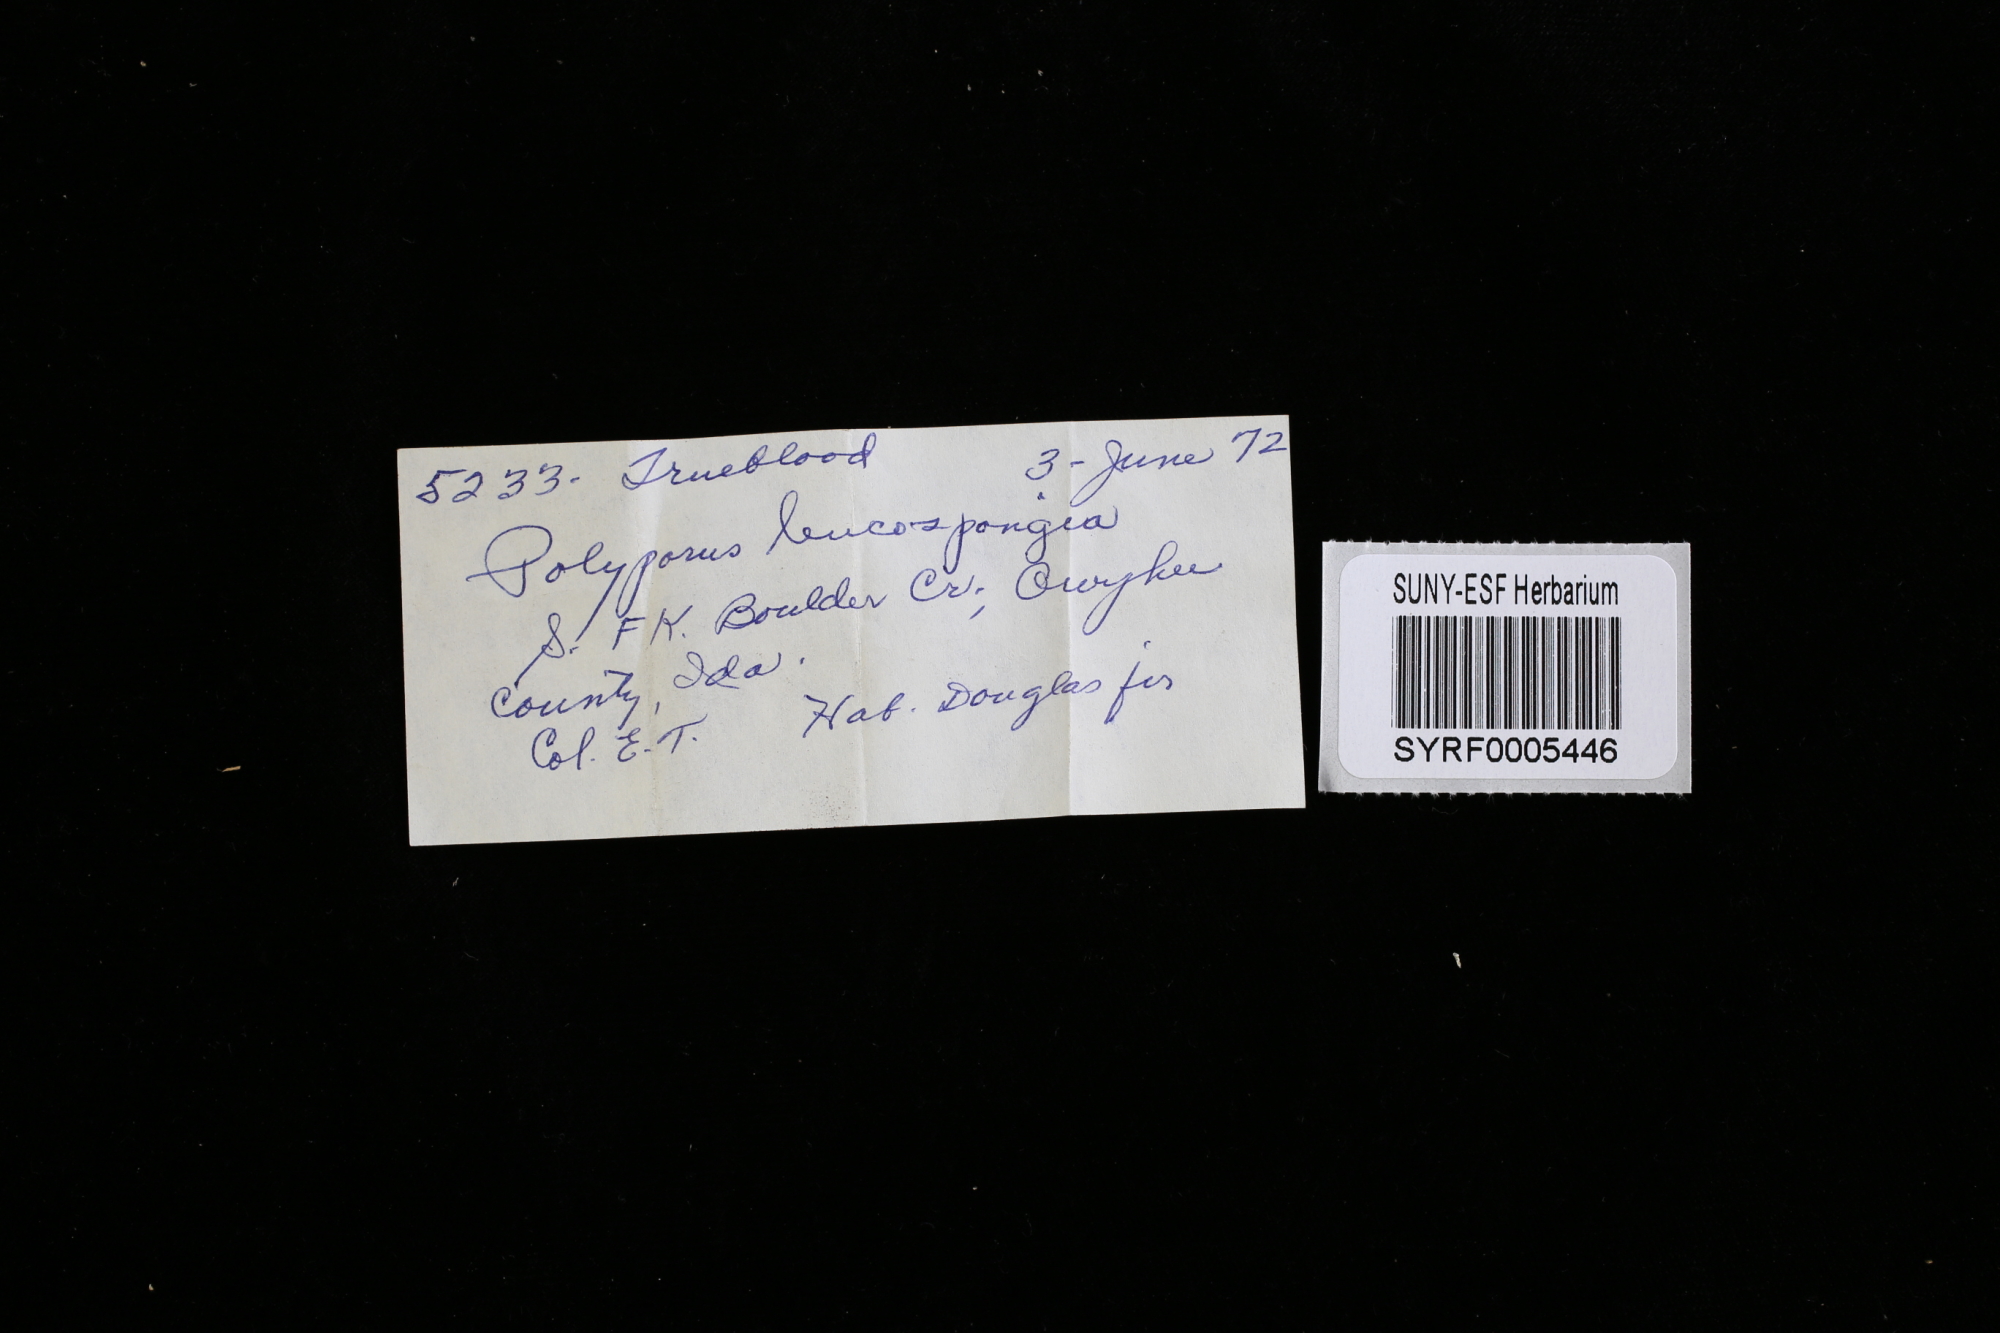 5233- Trueblood 3-June 72
Polyporus leucospongia
S. FK. Boulder Cr., Owyhee
County, Ida.
Col. E.T. Hab. Douglas fir
SUNY-ESF Herbarium
SYRF0005446